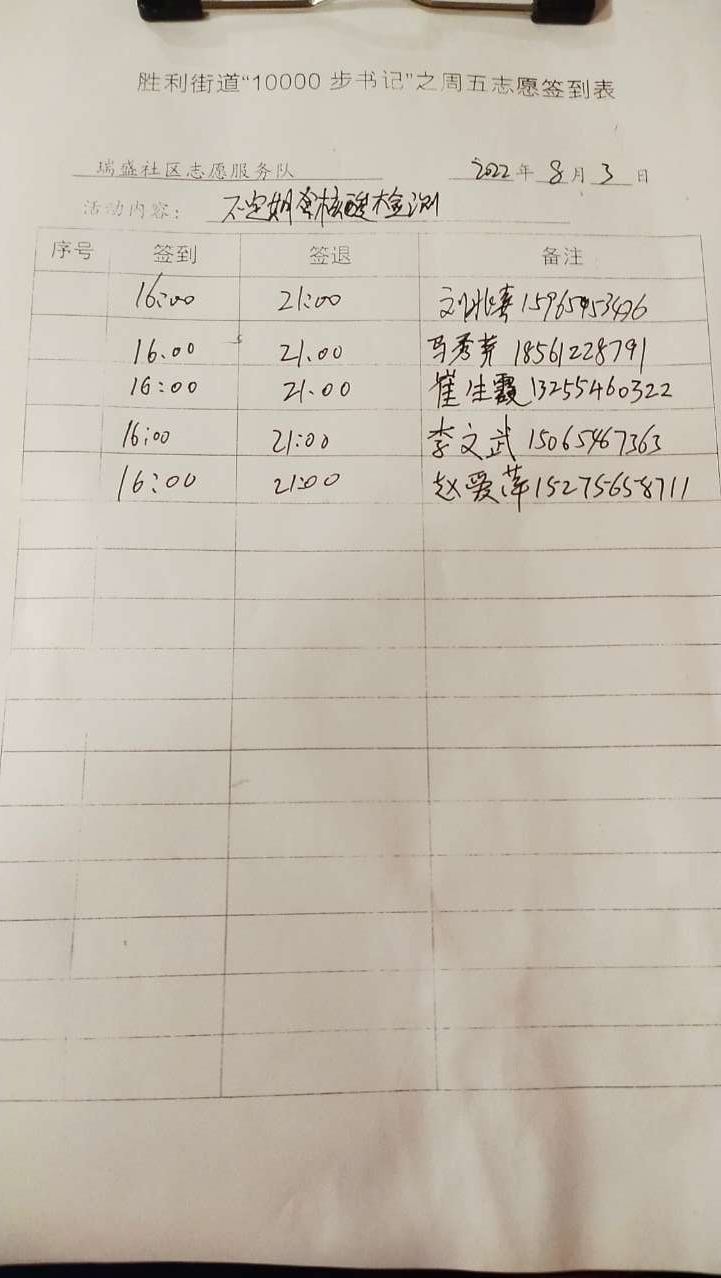 胜利街道“10000 步书记”之周五志愿签到表
瑞盛社区志愿服务队 2022 年 8 月 3 日
活动内容: 不定期 核酸检测
序号 签到 签退 备注
16:00 21:00 15965953426
16.00 21.00 马秀 18561228791
16:00 21.00 崔生霞 13255460322
16:00 21:00 李文武 15065467363
16:00 21:00 赵爱萍 15275658711